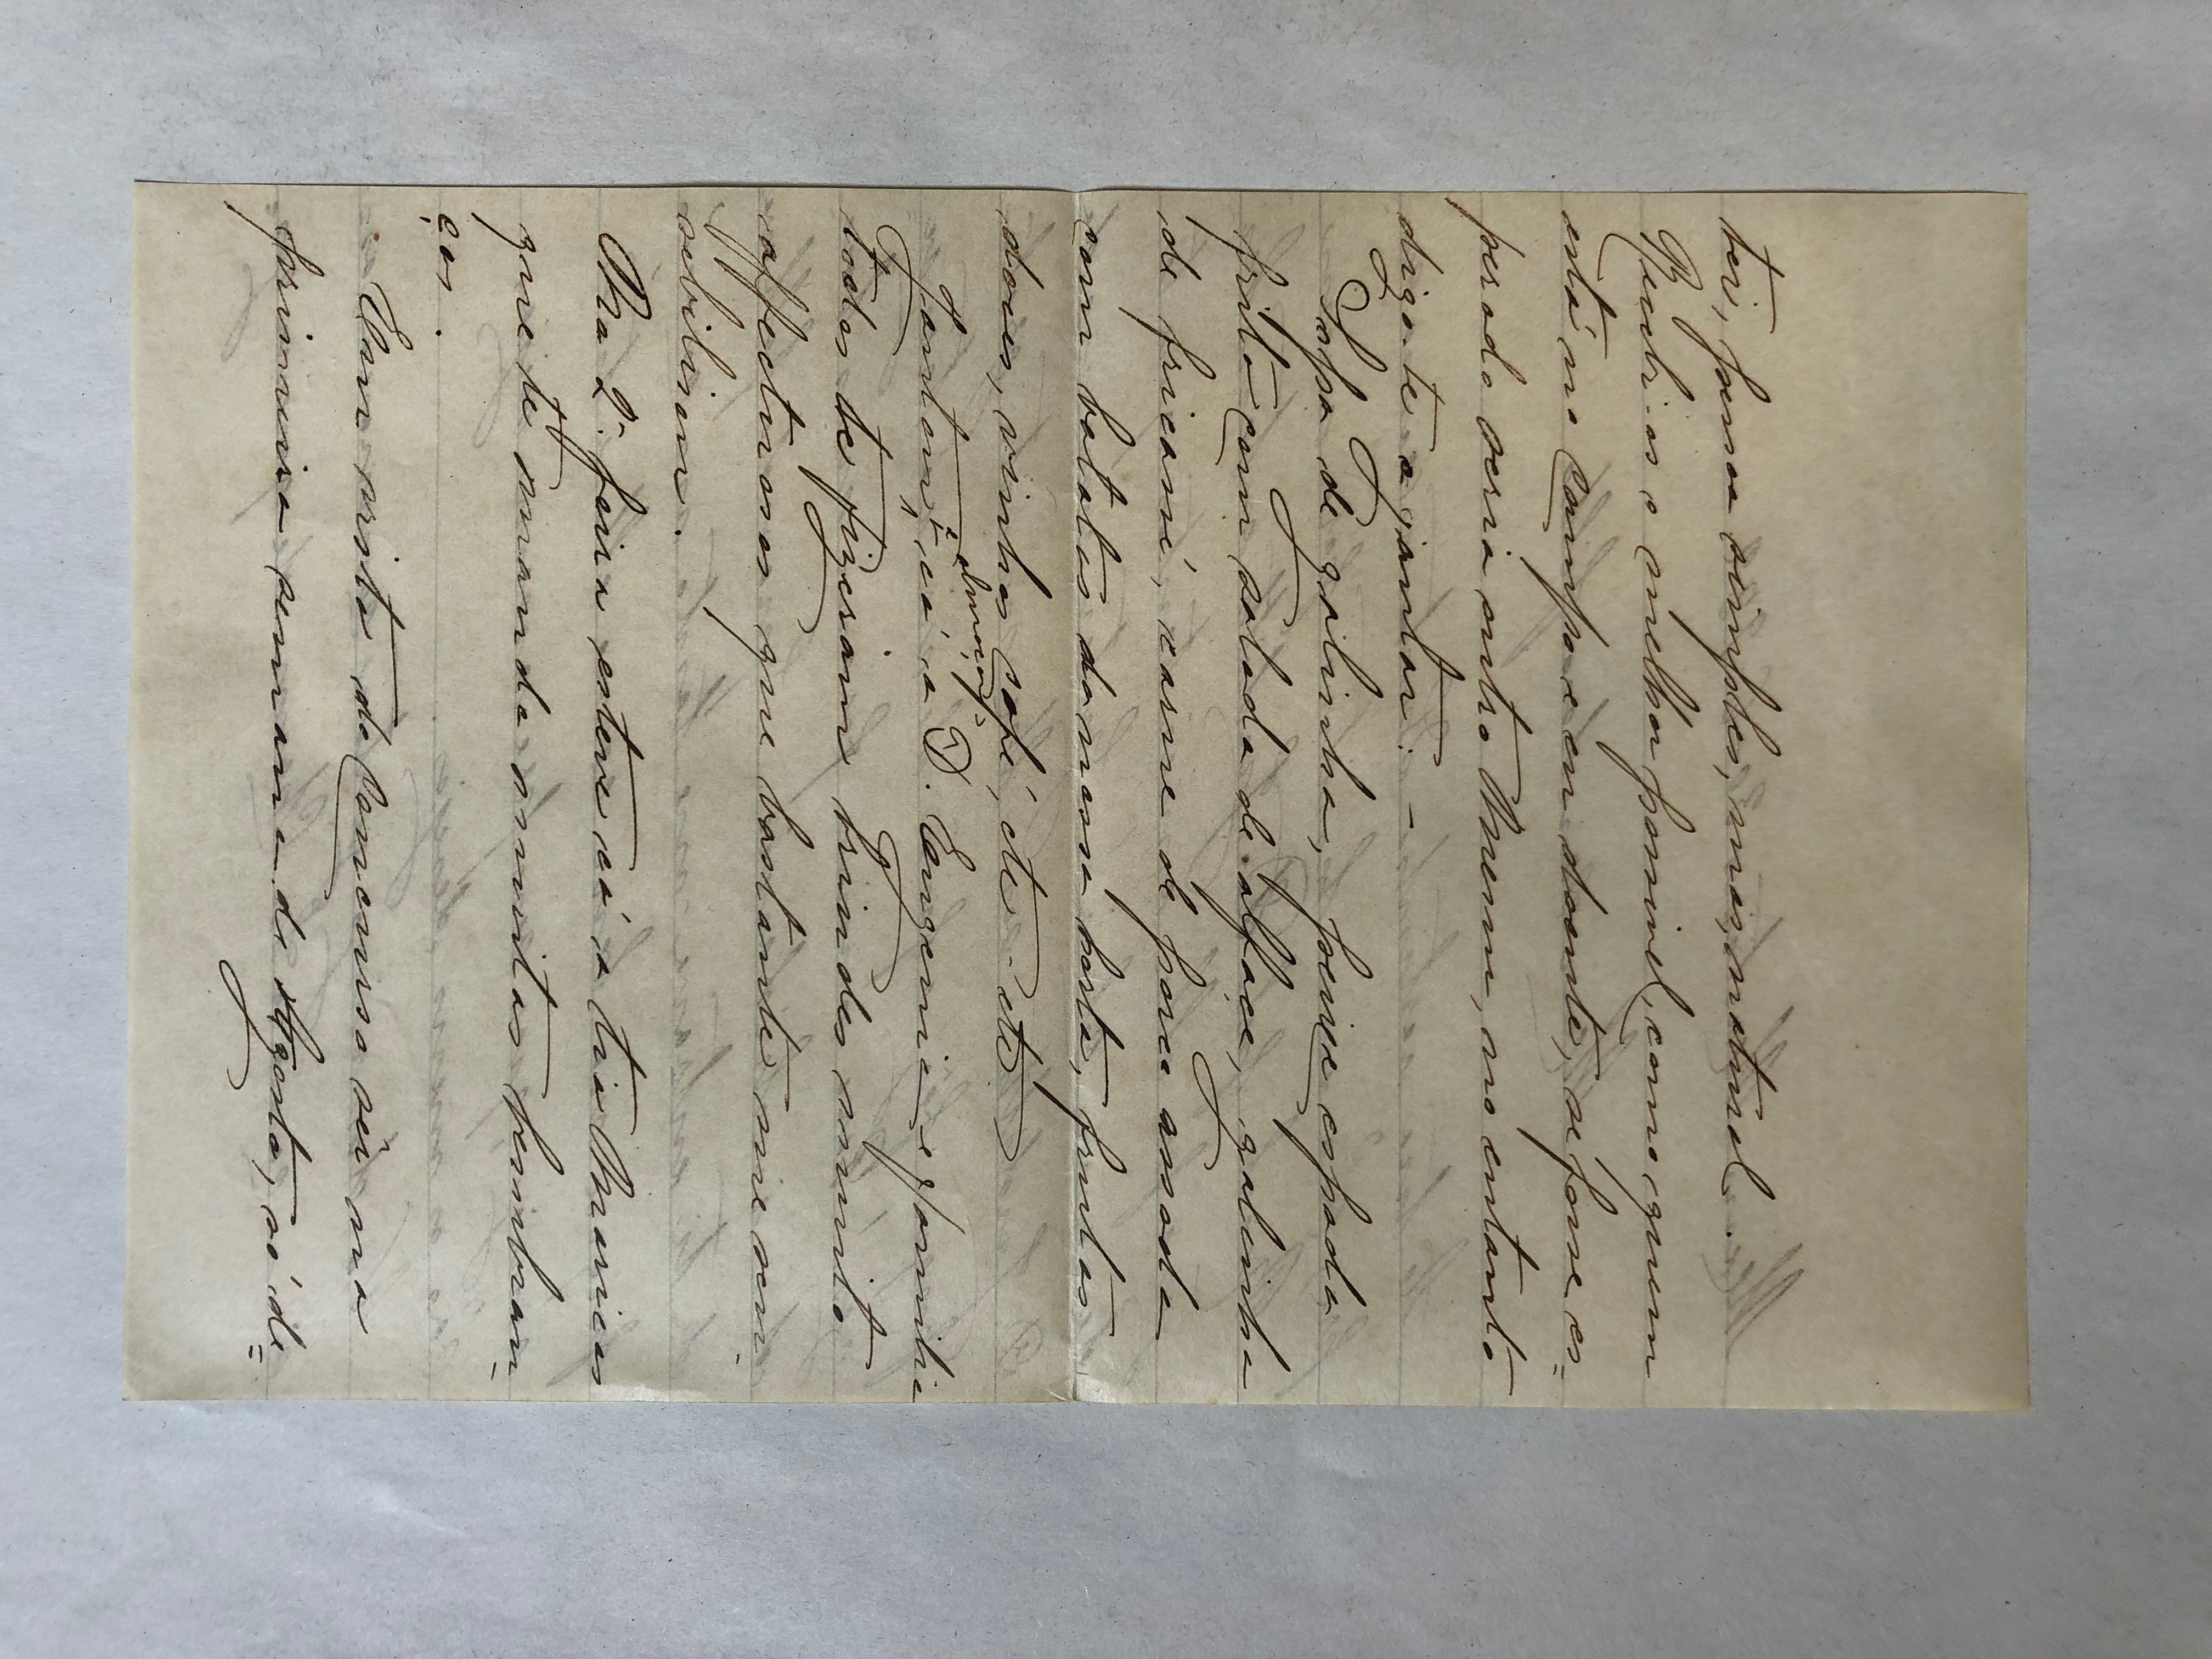 tei, pessoa simples, mas, natural.
Recebi-os o melhor possivel, como quem
está no campo e eu doente, se fosse es=
perado seria outro Menu, no entanto
digo-te o jantar: -
Sopa de galinha, peixe espada
frito com salada de alface, galinha
de fricassé, carne de porco assada
com batatas da nossa horta, frutas
doces, vinhos café, etc - etc
almoçou
Jantou e cá a D. Eugenia e familia
todos te fizeram brindes muito
affectuosos que bastante me sen-
sebilisou.
Na 2ª. feira esteve cá a tia Maricas
que te manda muitas lembran-
ças.
Em vista do Concurso sêr na
primeira semana de Agosto, só de=